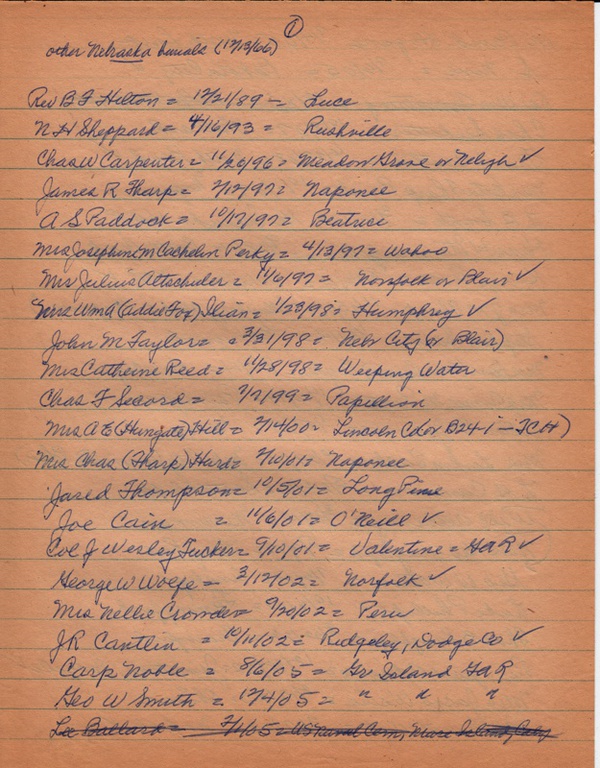 1
other Nebraska burials (12/13/66)
Rev B F Hilton = 12/21/89 = Luce
N H Sheppard = 4/16/93 = Rushville
Chas W Carpenter = 11/26/96 = Meadow Grove or Neligh ✓
James R Tharp = 2/12/97 = Naponee
A S Paddock = 10/17/97 = Beatrice
Mrs Josephine M Cachelin Perky = 4/13/97 = Wahoo
Mrs Julius Altschuler = 11/6/97 = Norfolk or Blair ✓
Mrs Wm A (Addie Fox) Ilian = 1/23/98 = Humphrey ✓
John M Taylor = 3/31/98 = Nebr City (or Blair)
Mrs Catherine Reed = 11/28/98 = Weeping Water
Chas F Secord = 7/2/99 = Papillion
Mrs A E (Hungate) Hill = 2/14/00 = Lincoln (or B24-1 - TCH)
Mrs Chas (Tharp) Hurd = 2/10/01 = Naponee
Jared Thompson = 10/5/01 = Long Pine
Joe Cain = 11/6/01 = O'Neill ✓
Col J Wesley Tucker = 9/10/01 = Valentine = GAR ✓
George W Wolfe = 3/12/02 = Norfolk ✓
Mrs Nellie Crowder = 9/20/02 = Peru
J R Cantlin = 10/11/02 = Ridgeley, Dodge Co ✓
Carp Noble = 8/6/05 = Gr Island GAR
Geo W Smith = 12/4/05 = " " "
Lee Ballard = 2/1/05 = US Naval Cem, Mare Island, Calif